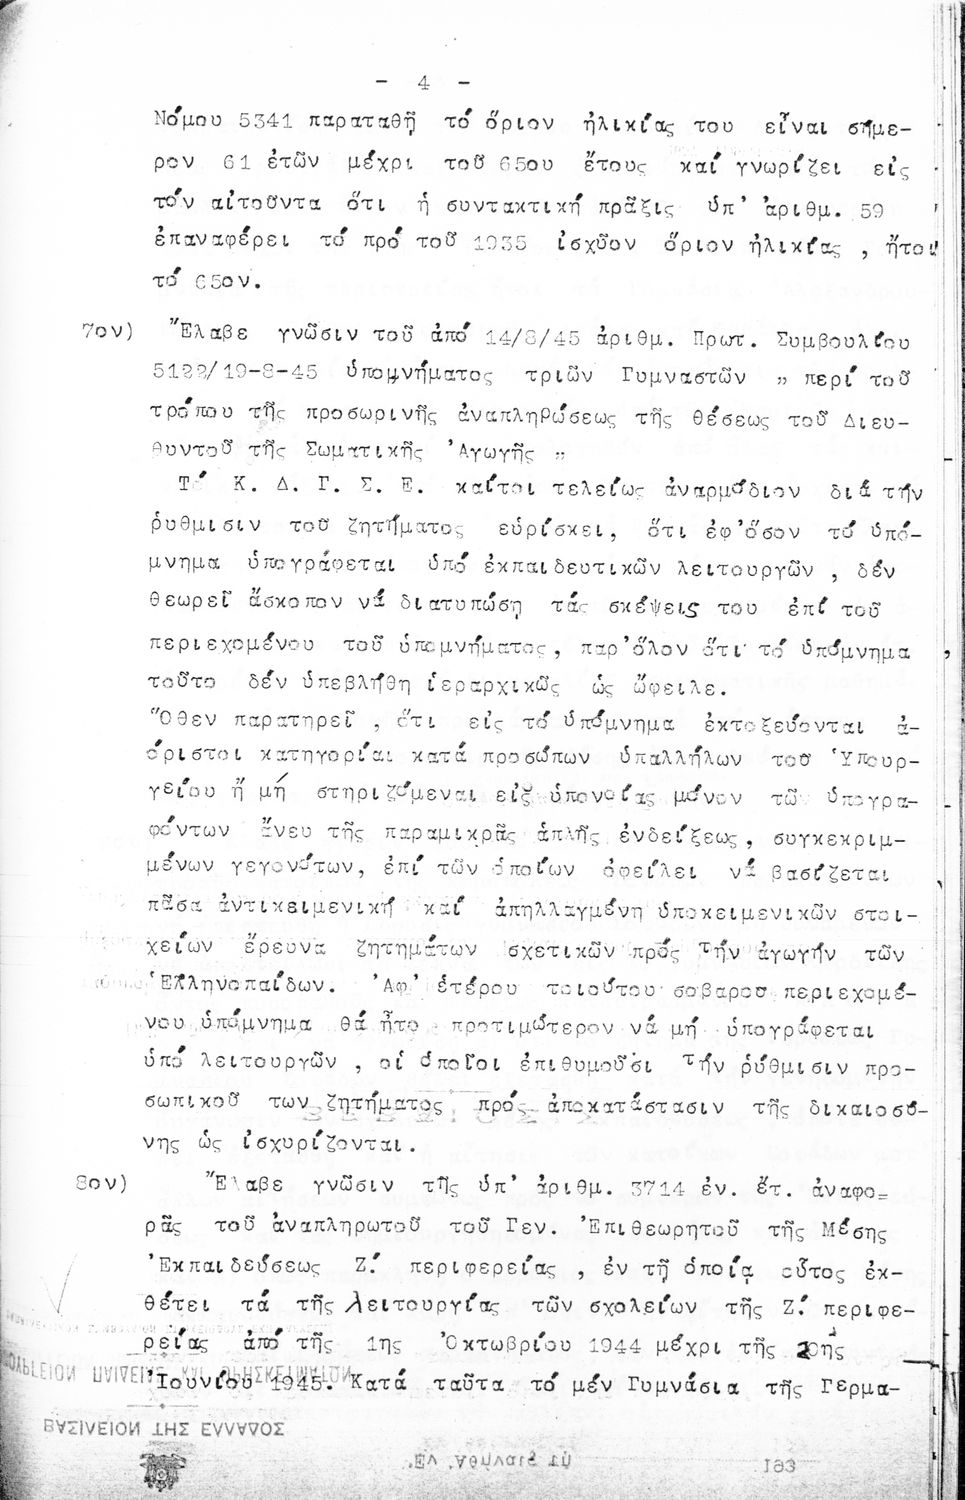 - 4 -
Νόμου 5341 παραταθῇ τό ὅριον ἡλικίας του εἶναι σήμε-
ρον 61 ἐτῶν μέχρι τοῦ 65ου ἔτους καί γνωρίζει εἰς
τόν αἰτοῦντα ὅτι ἡ συντακτική πρᾶξις ὑπ' ἀριθμ. 59
ἐπαναφέρει τό πρό τοῦ 1935 ἰσχῦον ὅριον ἡλικίας , ἤτοι
τό 65ον.
7ον) Ἔλαβε γνῶσιν τοῦ ἀπό 14/8/45 ἀριθμ. Πρωτ. Συμβουλίου
5122/19-8-45 ὑπομνήματος τριῶν Γυμναστῶν „ περί τοῦ
τρόπου τῆς προσωρινῆς ἀναπληρώσεως τῆς θέσεως τοῦ Διευ-
θυντοῦ τῆς Σωματικῆς Ἀγωγῆς „
Τό Κ. Δ. Γ. Σ. Ε. καίτοι τελείως ἀναρμόδιον διά τήν
ῥύθμισιν τοῦ ζητήματος εὑρίσκει, ὅτι ἐφ'ὅσον τό ὑπό-
μνημα ὑπογράφεται ὑπό ἐκπαιδευτικῶν λειτουργῶν , δέν
θεωρεῖ ἄσκοπον νά διατυπώσῃ τάς σκέψεις του ἐπί τοῦ
περιεχομένου τοῦ ὑπομνήματος, παρ'ὅλον ὅτι τό ὑπόμνημα
τοῦτο δέν ὑπεβλήθη ἱεραρχικῶς ὡς ὤφειλε.
Ὅθεν παρατηρεῖ , ὅτι εἰς τό ὑπόμνημα ἐκτοξεύονται ἀ-
όριστοι κατηγορίαι κατά προσώπων ὑπαλλήλων τοῦ Ὑπουρ-
γείου ἤ μή στηριζόμεναι εἰς ὑπονοίας μόνον τῶν ὑπογρα-
φόντων ἄνευ τῆς παραμικρᾶς ἁπλῆς ἐνδείξεως, συγκεκριμ-
μένων γεγονότων, ἐπί τῶν ὁποίων ὀφείλει νά βασίζεται
πᾶσα ἀντικειμενική καί ἀπηλλαγμένη ὑποκειμενικῶν στοι-
χείων ἔρευνα ζητημάτων σχετικῶν πρός τήν ἀγωγήν τῶν
Ἑλληνοπαίδων. Ἀφ' ἑτέρου τοιούτου σοβαροῦ περιεχομέ-
νου ὑπόμνημα θά ἦτο προτιμώτερον νά μή ὑπογράφεται
ὑπό λειτουργῶν , οἱ ὁποῖοι ἐπιθυμοῦσι τήν ῥύθμισιν προ-
σωπικοῦ των ζητήματος πρός ἀποκατάστασιν τῆς δικαιοσύ-
νης ὡς ἰσχυρίζονται.
8ον) Ἔλαβε γνῶσιν τῆς ὑπ' ἀριθμ. 3714 ἐν. ἔτ. ἀναφο=
ρᾶς τοῦ ἀναπληρωτοῦ τοῦ Γεν. Ἐπιθεωρητοῦ τῆς Μέσης
Ἐκπαιδεύσεως Ζ.' περιφερείας , ἐν τῇ ὁποίᾳ οὗτος ἐκ-
θέτει τά τῆς λειτουργίας τῶν σχολείων τῆς Ζ.' περιφε-
ρείας ἀπό τῆς 1ης Ὀκτωβρίου 1944 μέχρι τῆς 20ης
Ἰουνίου 1945. Κατά ταῦτα τό μέν Γυμνάσια τῆς Γερμα-
ΒΑΣΙΛΕΙΟΝ ΤΗΣ ΕΛΛΑΔΟΣ
163